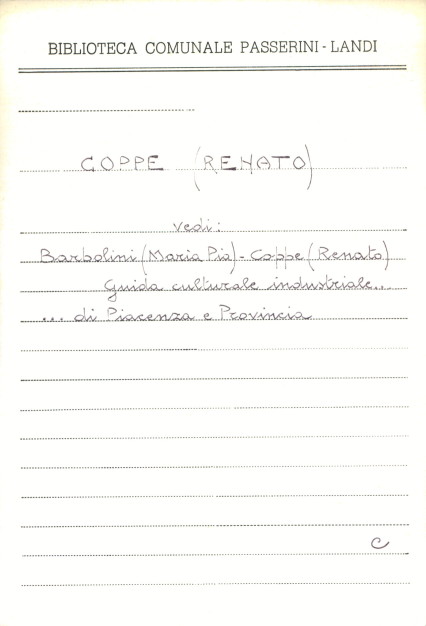 BIBLIOTECA COMUNALE PASSERINI-LANDI
COPPE (RENATO)
vedi:
Barbolini (Maria Pia) - Coppe (Renato)
Guida culturale industriale...
... di Piacenza e Provincia
C